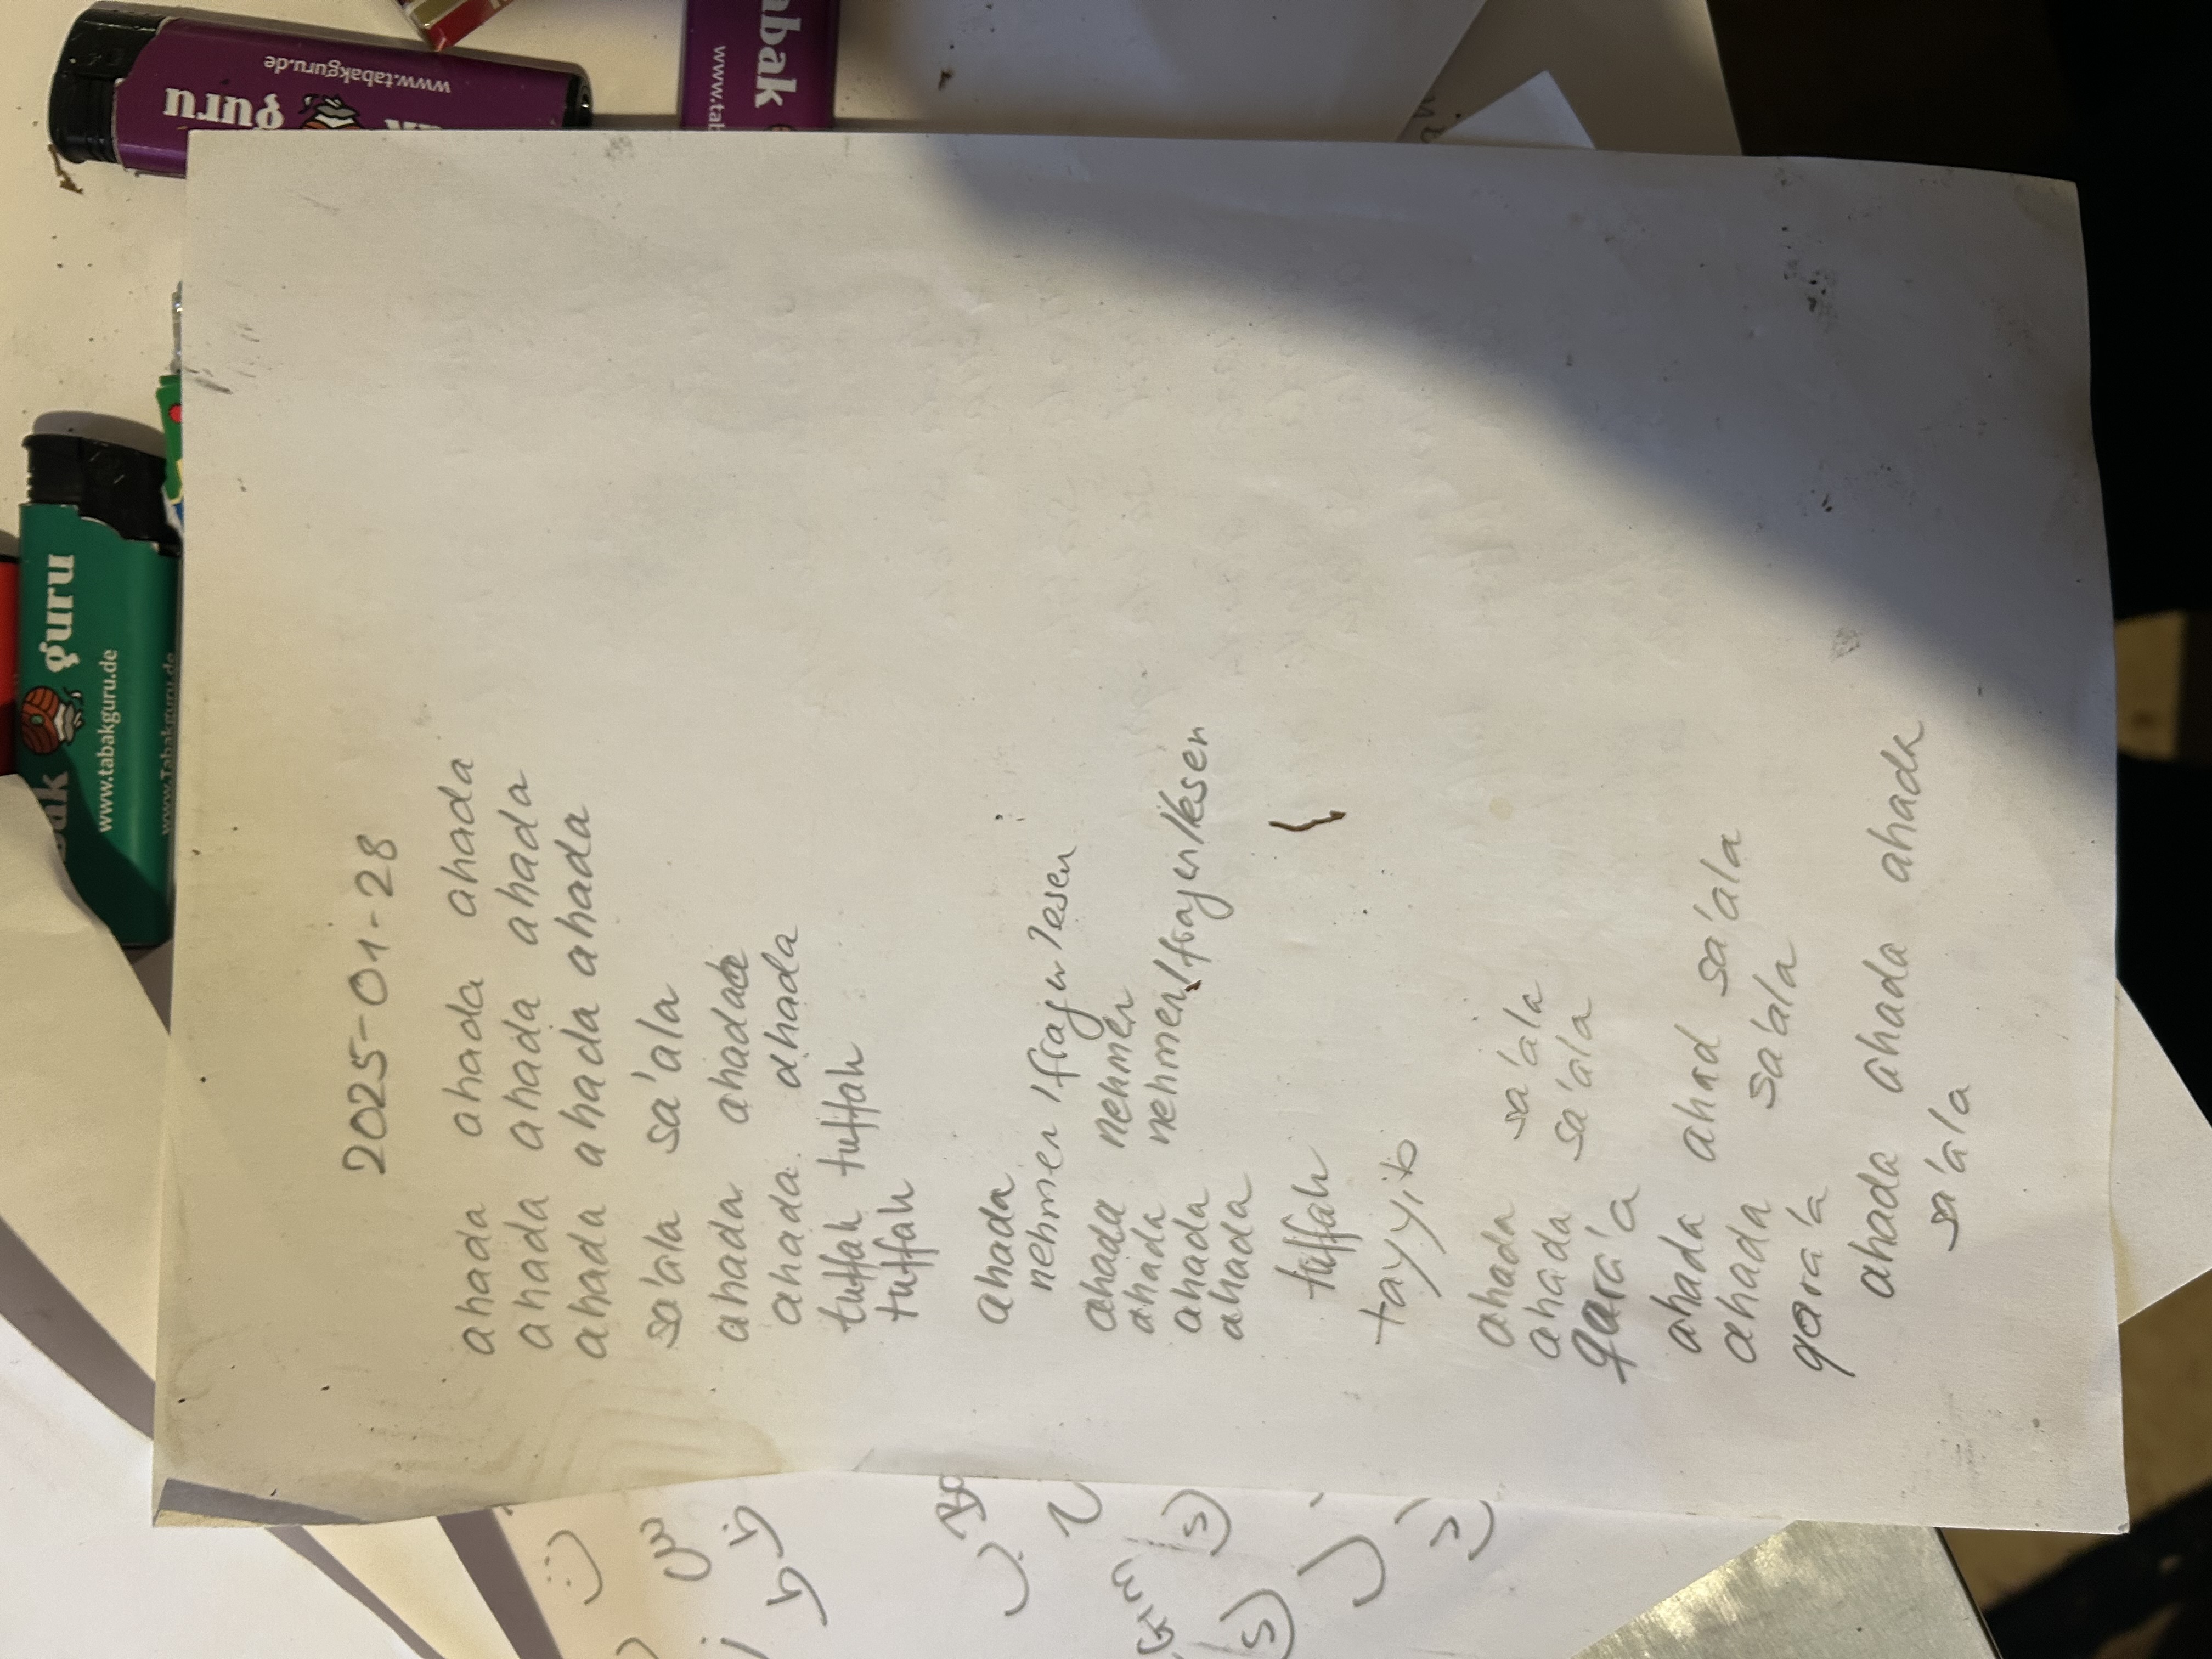 2025-01-28
ahada ahada ahada
ahada ahada ahada
ahada ahada ahada
sa'ala sa'ala
ahada ahada
ahada ahada
tuffah tuffah
tuffah
ahada
nehmen/fragen/lesen
ahada nehmen
ahada nehmen/fragen/lesen
ahada
ahada
tuffah
tayyib
ahada sa'ala
ahada sa'ala
qara'a
ahada ahad sa'ala
ahada sa'ala
qara'a
ahada ahada ahada
sa'ala
guru
www.tabakguru.de
bak
www.tab
guru
www.tabakguru.de
www.Tabakguru.de